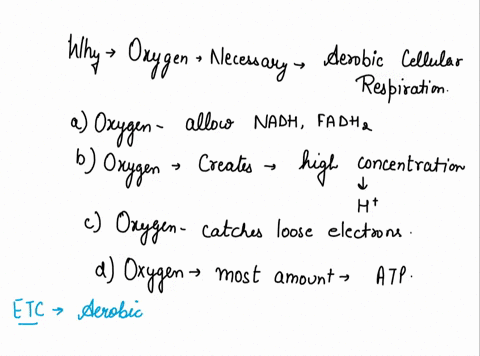 Why → Oxygen → Necessary → Aerobic Cellular
Respiration.
a) Oxygen - allow NADH, FADH₂
b) Oxygen → Creates → high concentration
↓
H⁺
c) Oxygen - catches loose electrons.
d) Oxygen → most amount → ATP.
ETC → Aerobic